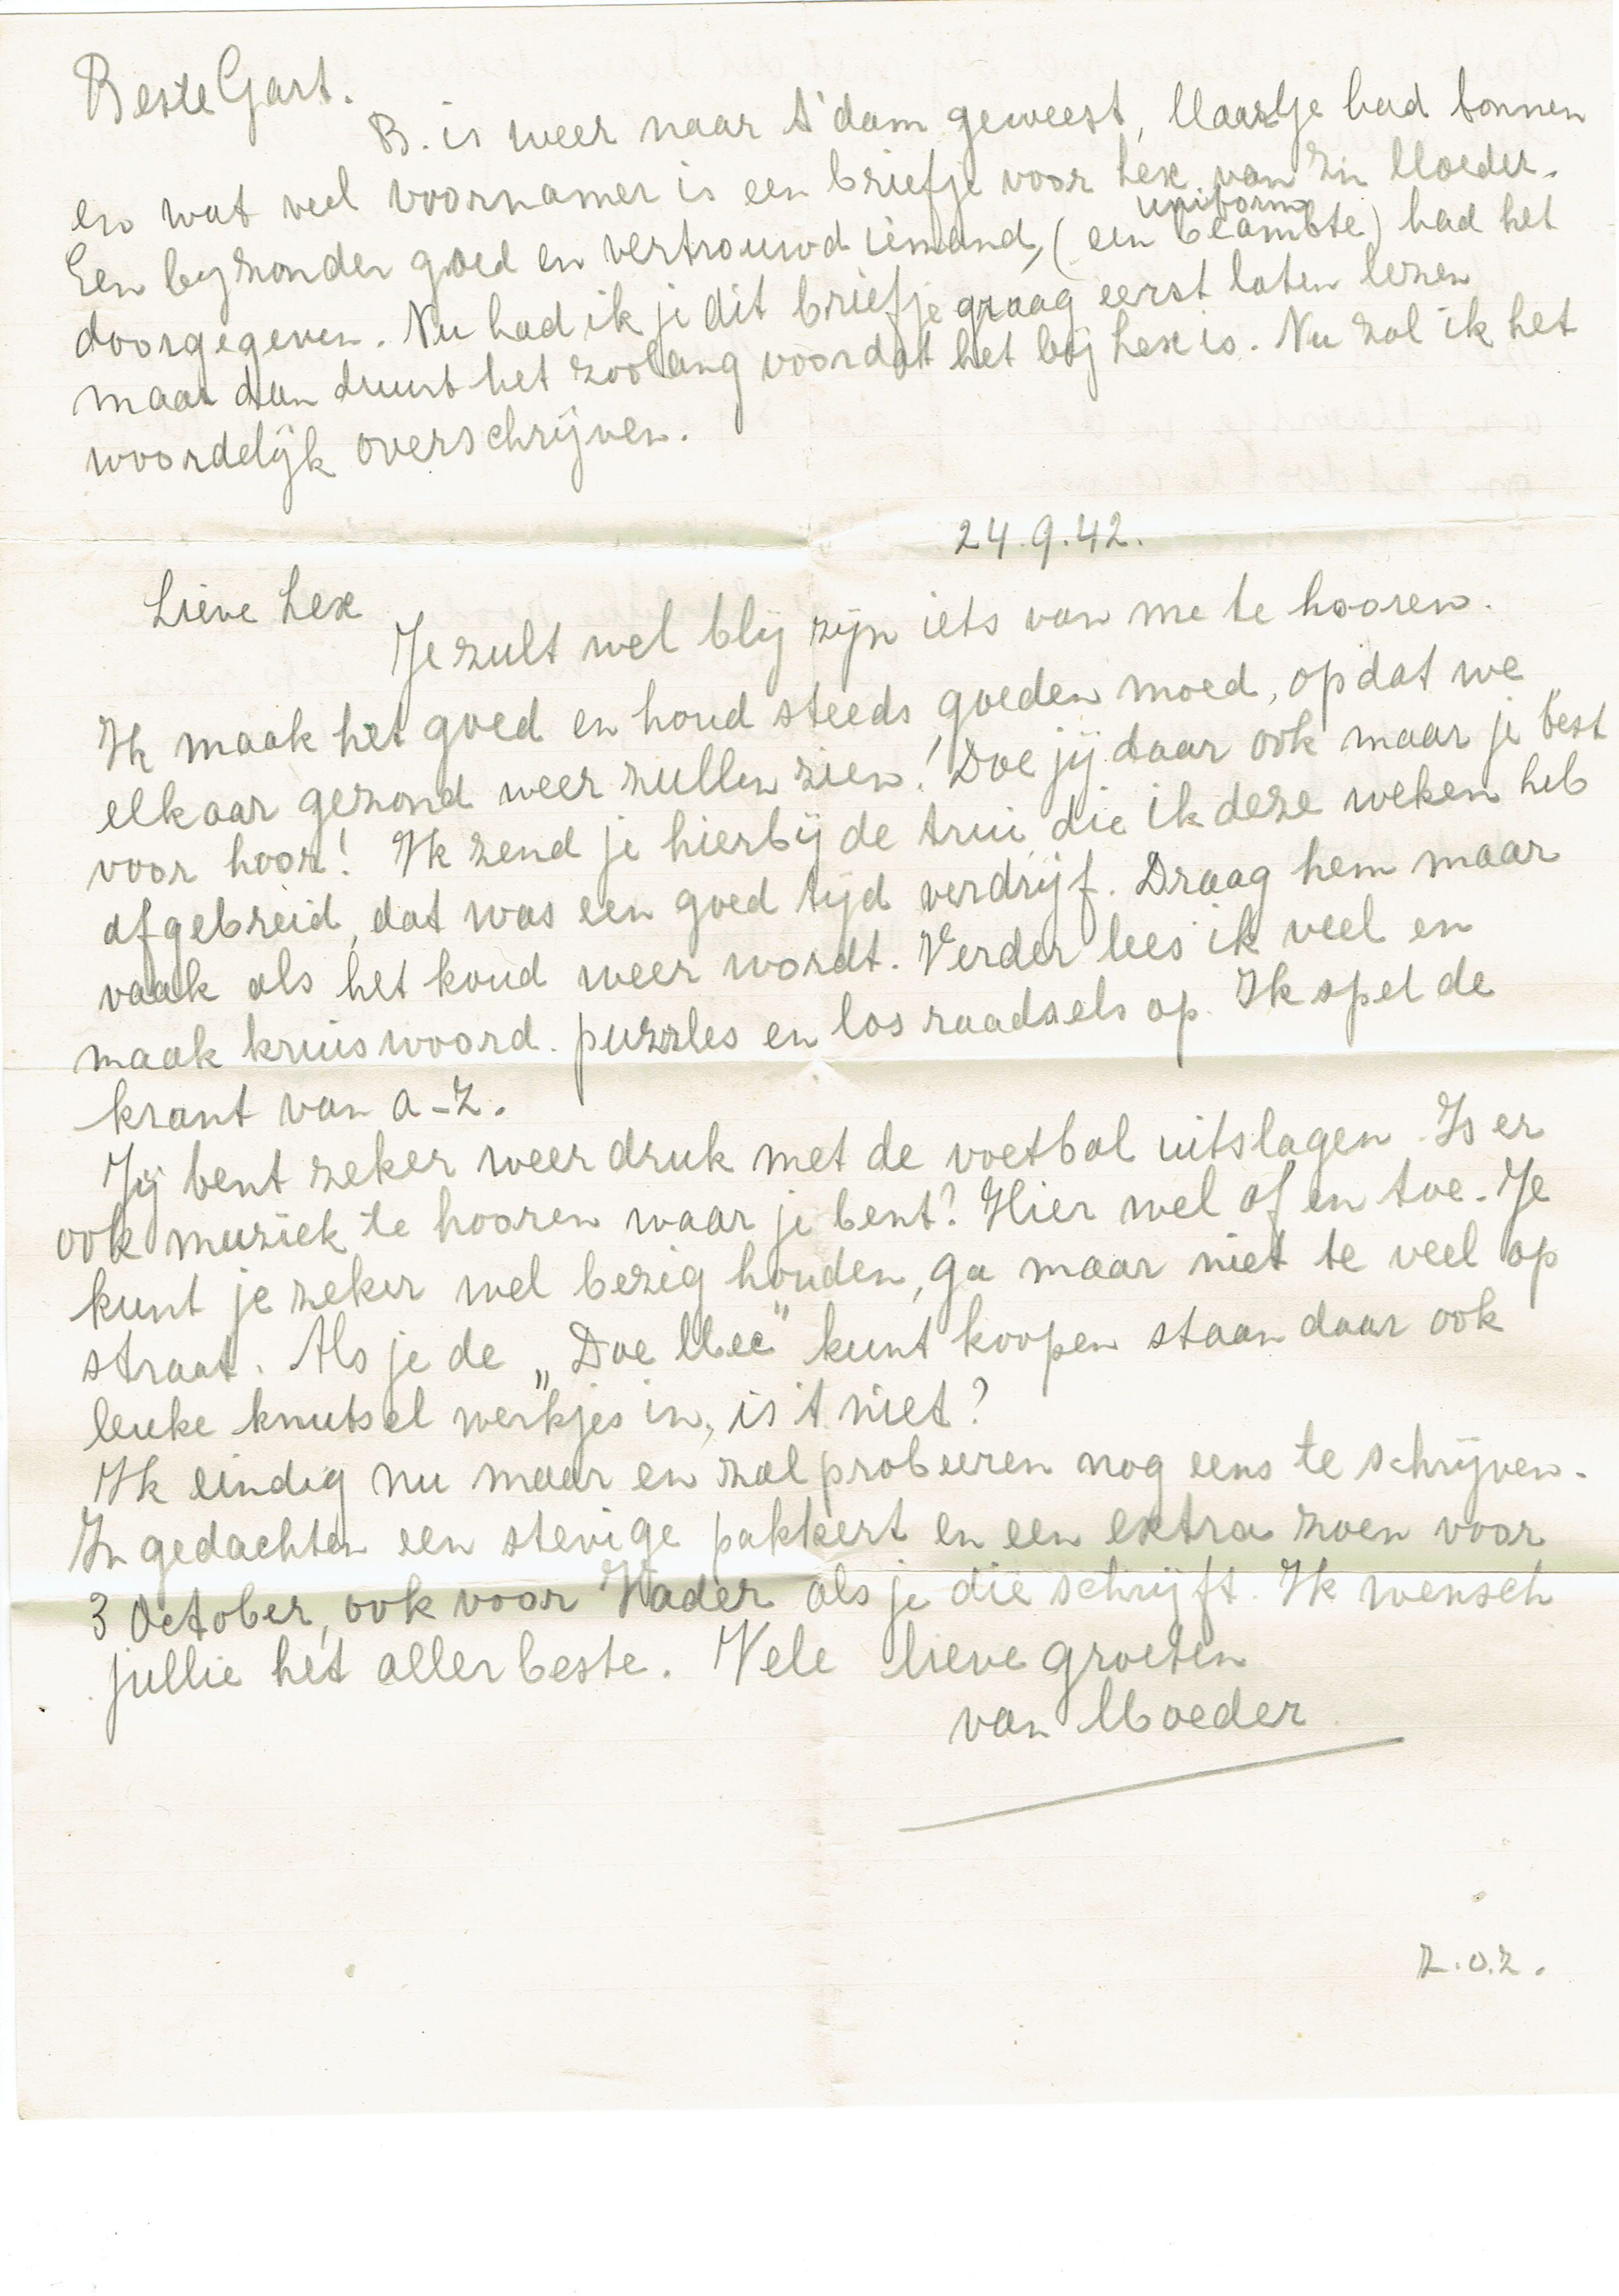 Beste Gart.
B. is weer naar A'dam geweest, Maartje had bonnen
en wat veel voornamer is een briefje voor Lex van zin Moeder.
uniform
Een byzonder goed en vertrouwd iemand, (een beambte) had het
doorgegeven. Nu had ik je dit briefje graag eerst laten lezen
maar dan duurt het zoolang voordat het bij Lex is. Nu zal ik het
woordelijk overschrijven.
24.9.42.
Lieve Lex
Je zult wel blij zijn iets van me te hooren.
Ik maak het goed en houd steeds goeden moed, opdat we
elkaar gezond weer zullen zien! Doe jij daar ook maar je best
voor hoor! Ik zend je hierbij de trui die ik deze weken heb
afgebreid, dat was een goed tijd verdrijf. Draag hem maar
vaak als het koud weer wordt. Verder lees ik veel en
maak kruiswoord. puzzles en los raadsels op. Ik spel de
krant van a-z.
Jij bent zeker weer druk met de voetbal uitslagen. Is er
ook muziek te hooren waar je bent? Hier wel af en toe. Je
kunt je zeker wel bezig houden, ga maar niet te veel op
straat. Als je de „Doe Mee" kunt koopen staan daar ook
leuke knutsel werkjes in, is 't niet?
Ik eindig nu maar en zal probeeren nog eens te schrijven.
In gedachten een stevige pakkert en een extra zoen voor
3 October, ook voor Vader als je die schrijft. Ik wensch
jullie het allerbeste. Vele lieve groeten
van Moeder
z.o.z.